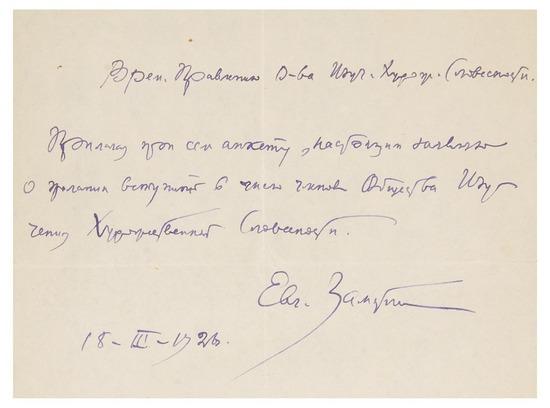 Врем. Правлению О-ва Изуч. Худож. Словесности.
Прилагая при сем анкету, настоящим заявляю
о желании вступить в число членов Общества Изу-
чения Художественной Словесности.
Евг. Замятин
18-III-1926.